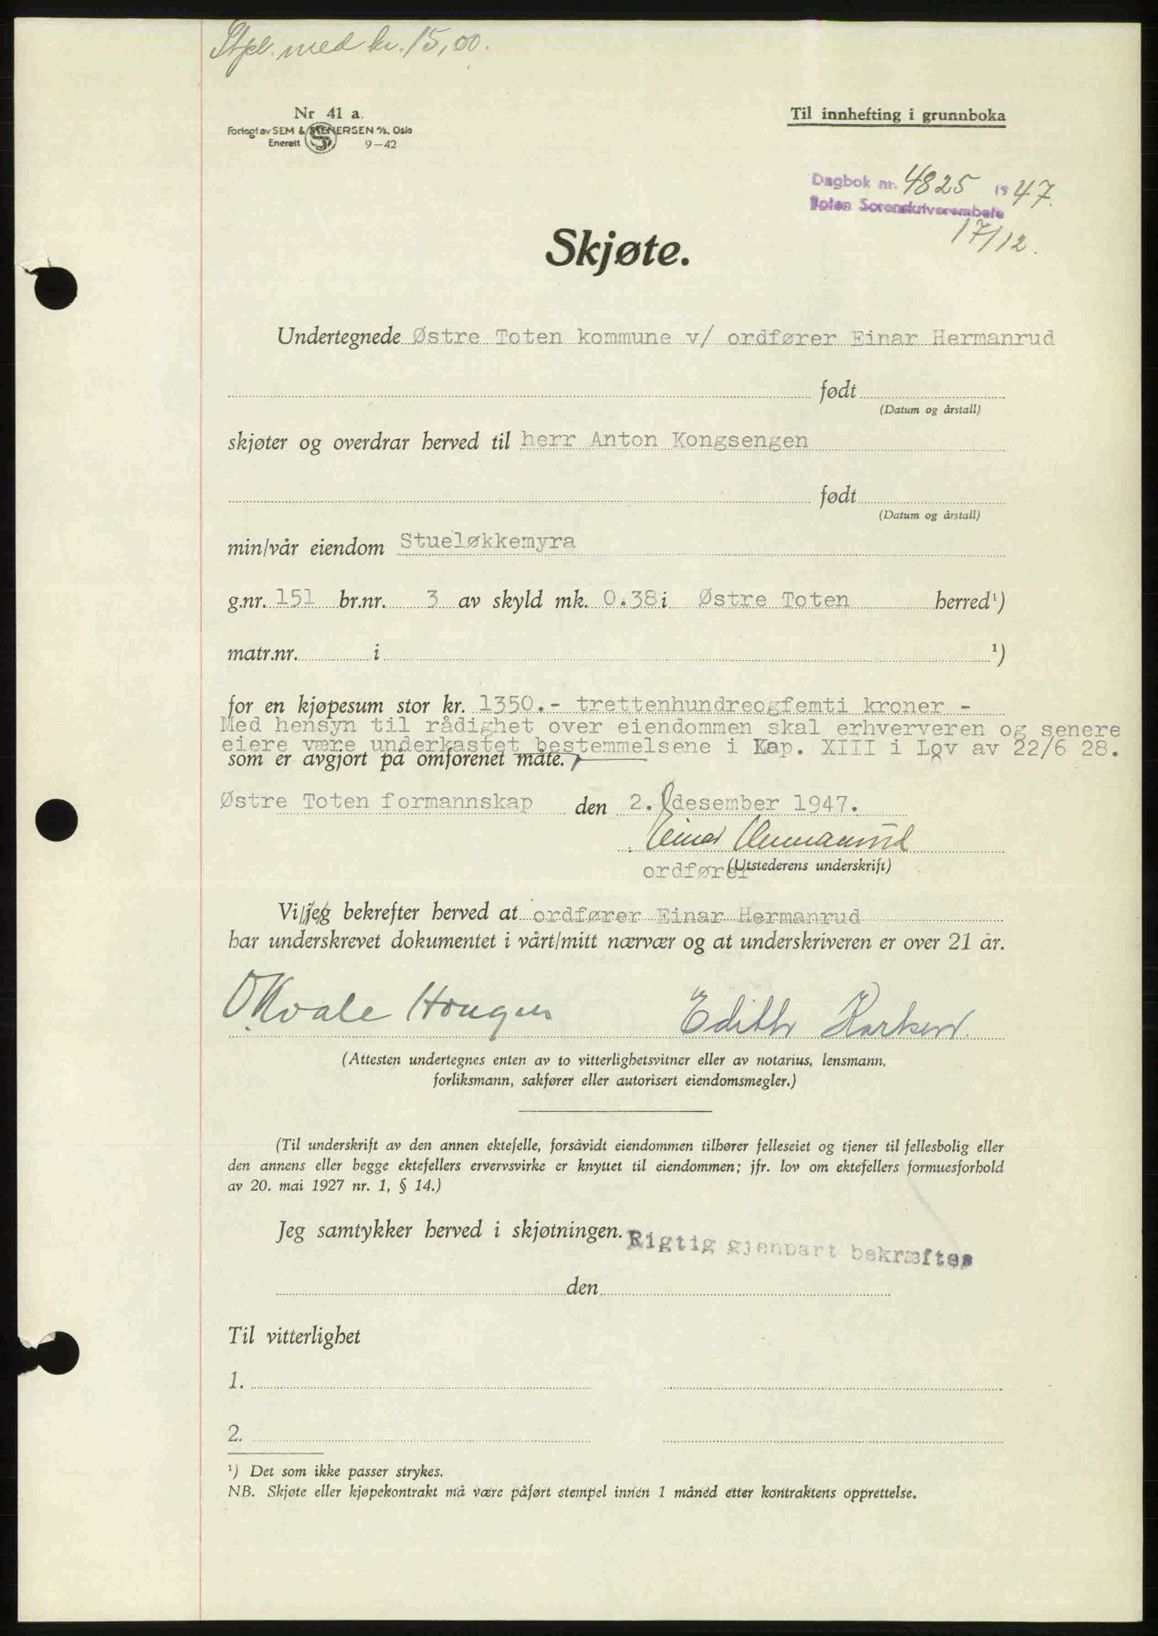 Stpl. med kr. 15,00.
Nr 41 a.
Til innhefting i grunnboka
Forlagt av SEM & STENERSEN A/S, Oslo
Enerett 9-42
Dagbok nr. 4825 1947.
Toten Sorenskriverembete
17/12.
Skjøte.
Undertegnede Østre Toten kommune v/ ordfører Einar Hermanrud
født
(Datum og årstall)
skjøter og overdrar herved til herr Anton Kongsengen
født
(Datum og årstall)
min/vår eiendom Stueløkkemyra
g.nr. 151 br.nr. 3 av skyld mk. 0.38 i Østre Toten herred¹)
matr.nr. i ¹)
for en kjøpesum stor kr. 1350.- trettenhundreogfemti kroner -
Med hensyn til rådighet over eiendommen skal erhververen og senere
eiere være underkastet bestemmelsene i Kap. XIII i Lov av 22/6 28.
som er avgjort på omforenet måte.
Østre Toten formannskap den 2. desember 1947.
Einar Hermanrud
ordfører (Utstederens underskrift)
Vi/jeg bekrefter herved at ordfører Einar Hermanrud
har underskrevet dokumentet i vårt/mitt nærvær og at underskriveren er over 21 år.
O Kvale Haugen Edith
(Attesten undertegnes enten av to vitterlighetsvitner eller av notarius, lensmann,
forliksmann, sakfører eller autorisert eiendomsmegler.)
(Til underskrift av den annen ektefelle, forsåvidt eiendommen tilhører felleseiet og tjener til fellesbolig eller
den annens eller begge ektefellers ervervsvirke er knyttet til eiendommen; jfr. lov om ektefellers formuesforhold
av 20. mai 1927 nr. 1, § 14.)
Jeg samtykker herved i skjøtningen.
Rigtig gjenpart bekræftes
den
Til vitterlighet
1.
2.
¹) Det som ikke passer strykes.
NB. Skjøte eller kjøpekontrakt må være påført stempel innen 1 måned etter kontraktens opprettelse.